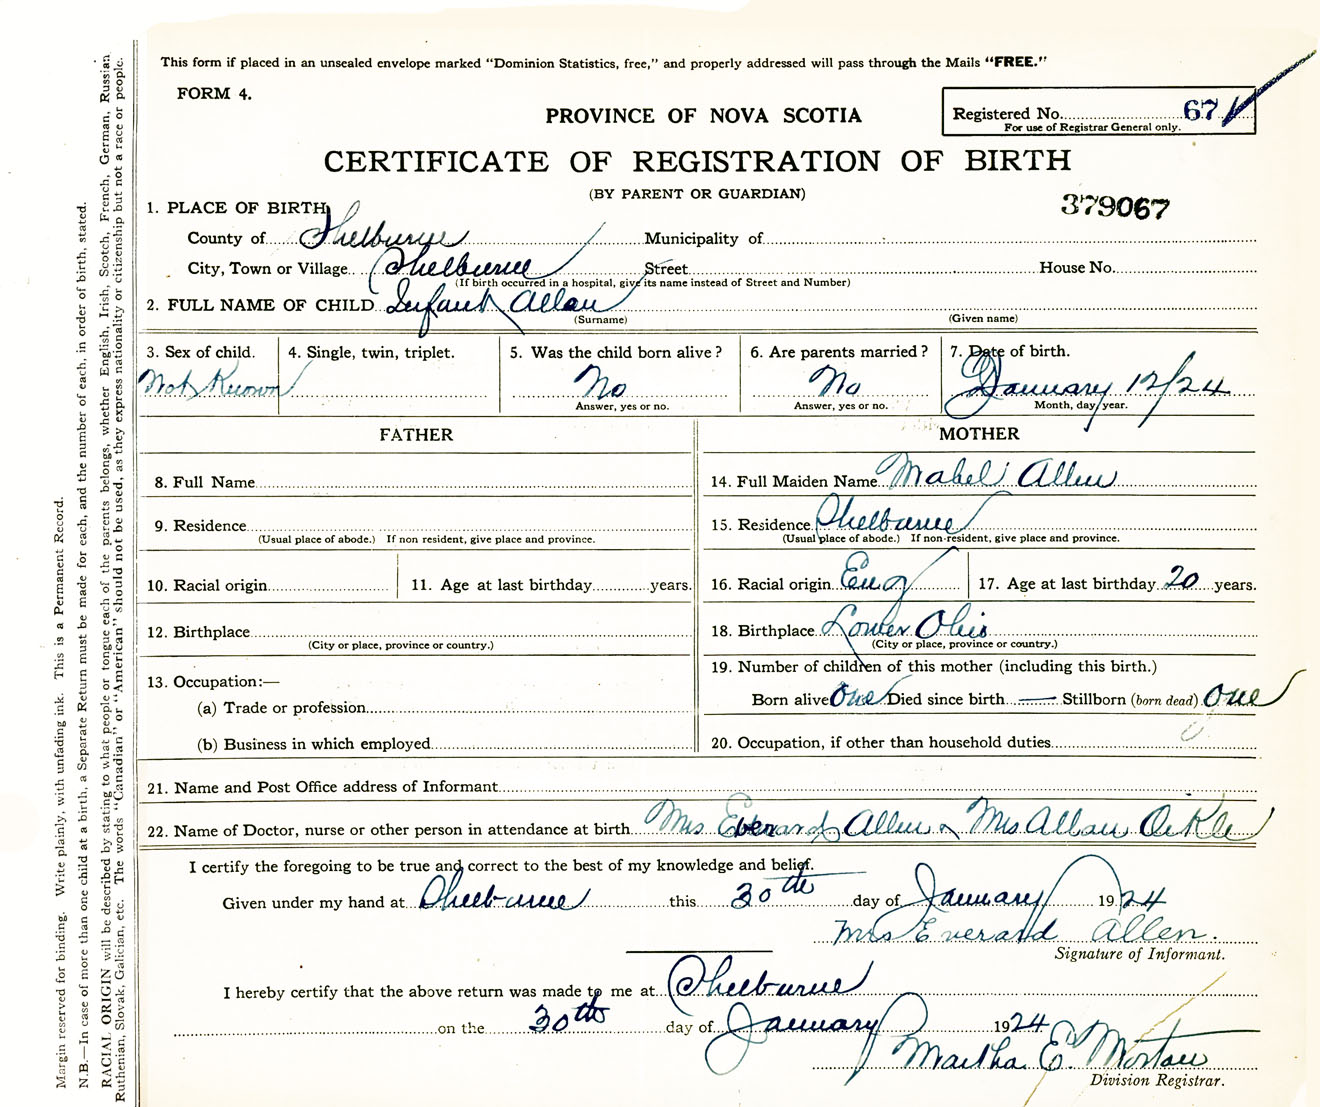 This form if placed in an unsealed envelope marked "Dominion Statistics, free," and properly addressed will pass through the Mails "FREE."
FORM 4.
PROVINCE OF NOVA SCOTIA
Registered No. 67
For use of Registrar General only.
CERTIFICATE OF REGISTRATION OF BIRTH
(BY PARENT OR GUARDIAN)
379067
1. PLACE OF BIRTH
County of Shelburne Municipality of
City, Town or Village Shelburne Street House No.
(If birth occurred in a hospital, give its name instead of Street and Number)
2. FULL NAME OF CHILD Infant Allan
(Surname) (Given name)
3. Sex of child. 4. Single, twin, triplet. 5. Was the child born alive? 6. Are parents married? 7. Date of birth.
Not Known No No January 12/24
Answer, yes or no. Answer, yes or no. Month, day, year.
FATHER MOTHER
8. Full Name 14. Full Maiden Name Mabel Allen
9. Residence 15. Residence Shelburne
(Usual place of abode.) If non resident, give place and province. (Usual place of abode.) If non-resident, give place and province.
10. Racial origin 11. Age at last birthday years. 16. Racial origin Eng 17. Age at last birthday 20 years.
12. Birthplace 18. Birthplace Lower Ohio
(City or place, province or country.) (City or place, province or country.)
13. Occupation:— 19. Number of children of this mother (including this birth.)
(a) Trade or profession Born alive One Died since birth — Stillborn (born dead) One
(b) Business in which employed 20. Occupation, if other than household duties
21. Name and Post Office address of Informant
22. Name of Doctor, nurse or other person in attendance at birth Mrs Everard Allen & Mrs Allan
I certify the foregoing to be true and correct to the best of my knowledge and belief.
Given under my hand at Shelburne this 30th day of January 1924
Mrs Everard Allen.
Signature of Informant.
I hereby certify that the above return was made to me at Shelburne
on the 30th day of January 1924
Martha E. Morton
Division Registrar.
Margin reserved for binding. Write plainly, with unfading ink. This is a Permanent Record.
N.B.—In case of more than one child at a birth, a Separate Return must be made for each, and the number of each, in order of birth, stated.
RACIAL ORIGIN will be described by stating to what people or tongue each of the parents belongs, whether English, Irish, Scotch, French, German, Russian
Ruthenian, Slovak, Galician, etc. The words "Canadian" or "American" should not be used, as they express nationality or citizenship but not a race or people.